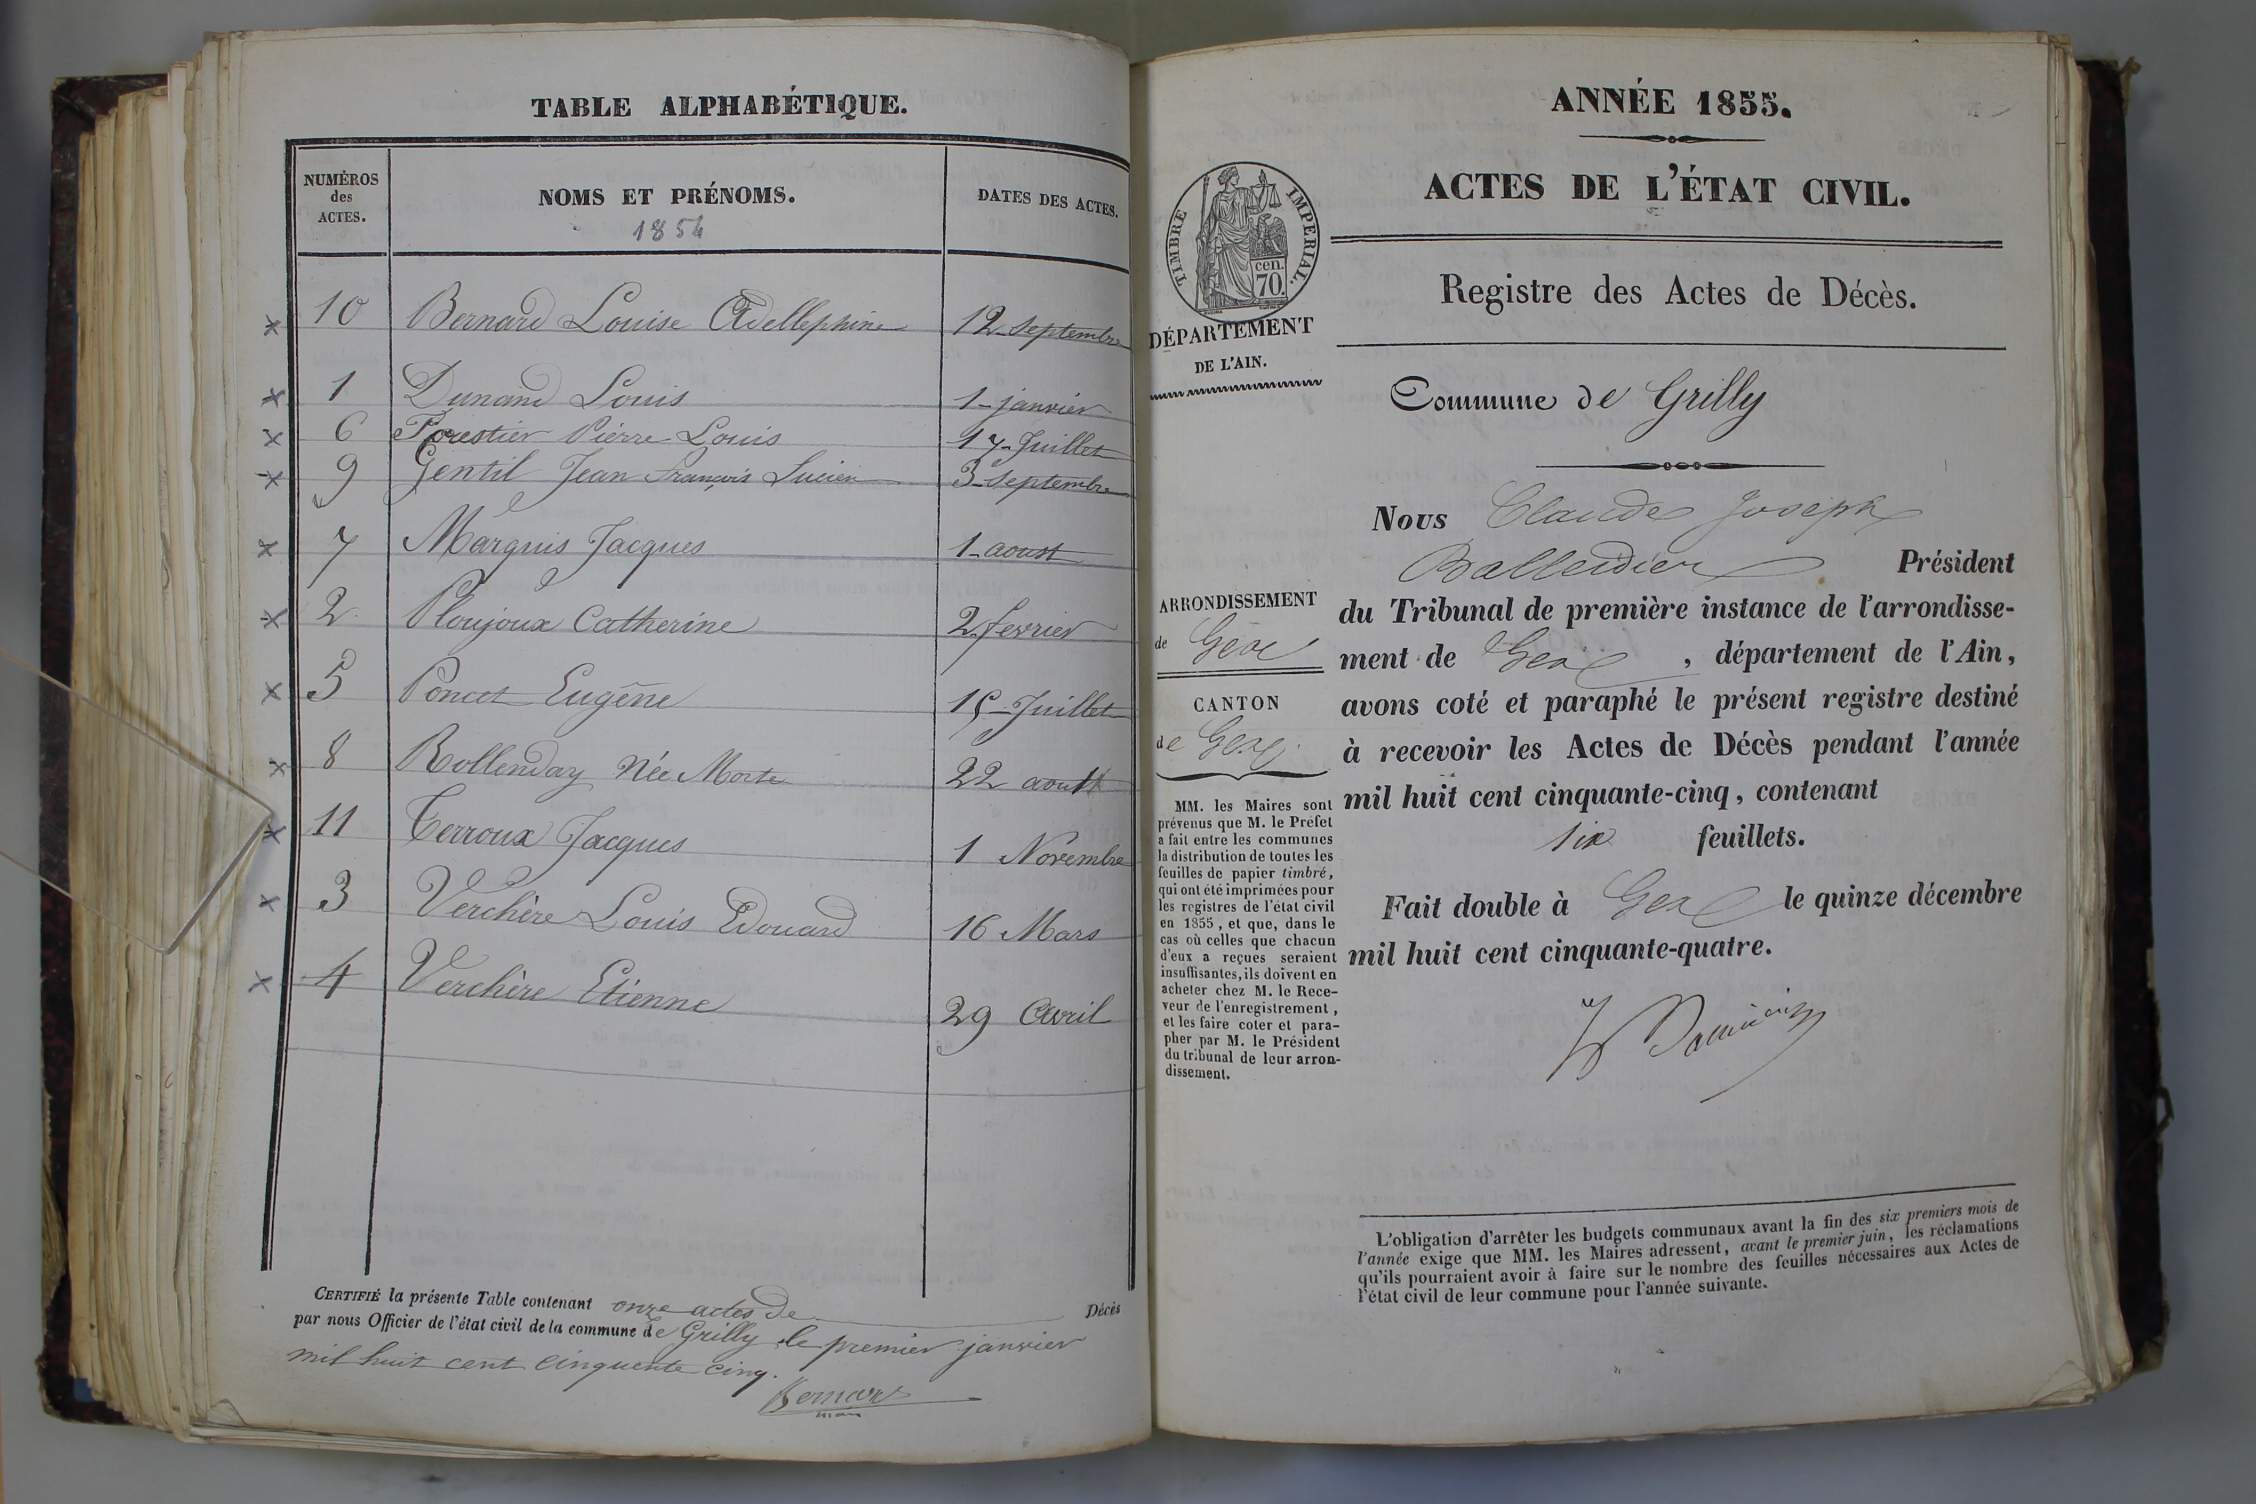 TABLE ALPHABÉTIQUE.
NUMÉROS des ACTES.
NOMS ET PRÉNOMS.
1854
DATES DES ACTES.
10 Bernard Louise Adellephine 12 septembre
1 Dunand Louis 1 janvier
6 Forestier Pierre Louis 17 Juillet
9 Gentil Jean François Lucien 3 septembre
7 Marquis Jacques 1 aoust
2 Ploujoux Catherine 2 fevrier
5 Poncet Eugène 15 Juillet
8 Rollenday Née Morte 22 aoust
11 Terroux Jacques 1 Novembre
3 Verchère Louis Edouard 16 Mars
4 Verchère Etienne 29 Avril
CERTIFIÉ la présente Table contenant onze actes de Décès
par nous Officier de l'état civil de la commune de Grilly le premier janvier
mil huit cent cinquente cinq.
Bernard
maire
ANNÉE 1855.
ACTES DE L'ÉTAT CIVIL.
TIMBRE IMPERIAL.
cen.
70.
DÉPARTEMENT
DE L'AIN.
Registre des Actes de Décès.
Commune de Grilly
Nous Claude Joseph
Balleidier Président
du Tribunal de première instance de l'arrondisse-
ment de Gex, département de l'Ain,
avons coté et paraphé le présent registre destiné
à recevoir les Actes de Décès pendant l'année
mil huit cent cinquante-cinq, contenant
six feuillets.
Fait double à Gex le quinze décembre
mil huit cent cinquante-quatre.
ARRONDISSEMENT
de Gex
CANTON
de Gex
MM. les Maires sont
prévenus que M. le Préfet
a fait entre les communes
la distribution de toutes les
feuilles de papier timbré,
qui ont été imprimées pour
les registres de l'état civil
en 1855, et que, dans le
cas où celles que chacun
d'eux a reçues seraient
insuffisantes, ils doivent en
acheter chez M. le Rece-
veur de l'enregistrement,
et les faire coter et para-
pher par M. le Président
du tribunal de leur arron-
dissement.
L'obligation d'arrêter les budgets communaux avant la fin des six premiers mois de
l'année exige que MM. les Maires adressent, avant le premier juin, les réclamations
qu'ils pourraient avoir à faire sur le nombre des feuilles nécessaires aux Actes de
l'état civil de leur commune pour l'année suivante.